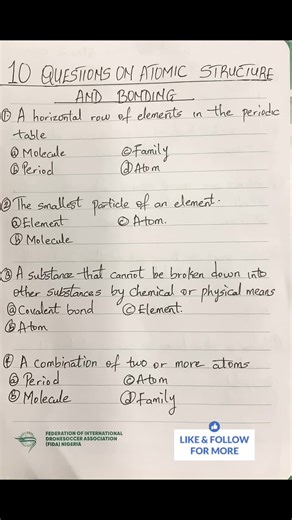 10 QUESTIONS ON ATOMIC STRUCTURE
AND BONDING
① A horizontal row of elements in the periodic
table
ⓐ Molecule ⓒ Family
ⓑ Period ⓓ Atom
② The smallest particle of an element.
ⓐ Element ⓒ Atom.
ⓑ Molecule
③ A substance that cannot be broken down into
other substances by chemical or physical means
ⓐ Covalent bond ⓒ Element.
ⓑ Atom
④ A combination of two or more atoms
ⓐ Period ⓒ Atom
ⓑ Molecule ⓓ Family
FEDERATION OF INTERNATIONAL
DRONESOCCER ASSOCIATION
(FIDA) NIGERIA
LIKE & FOLLOW
FOR MORE